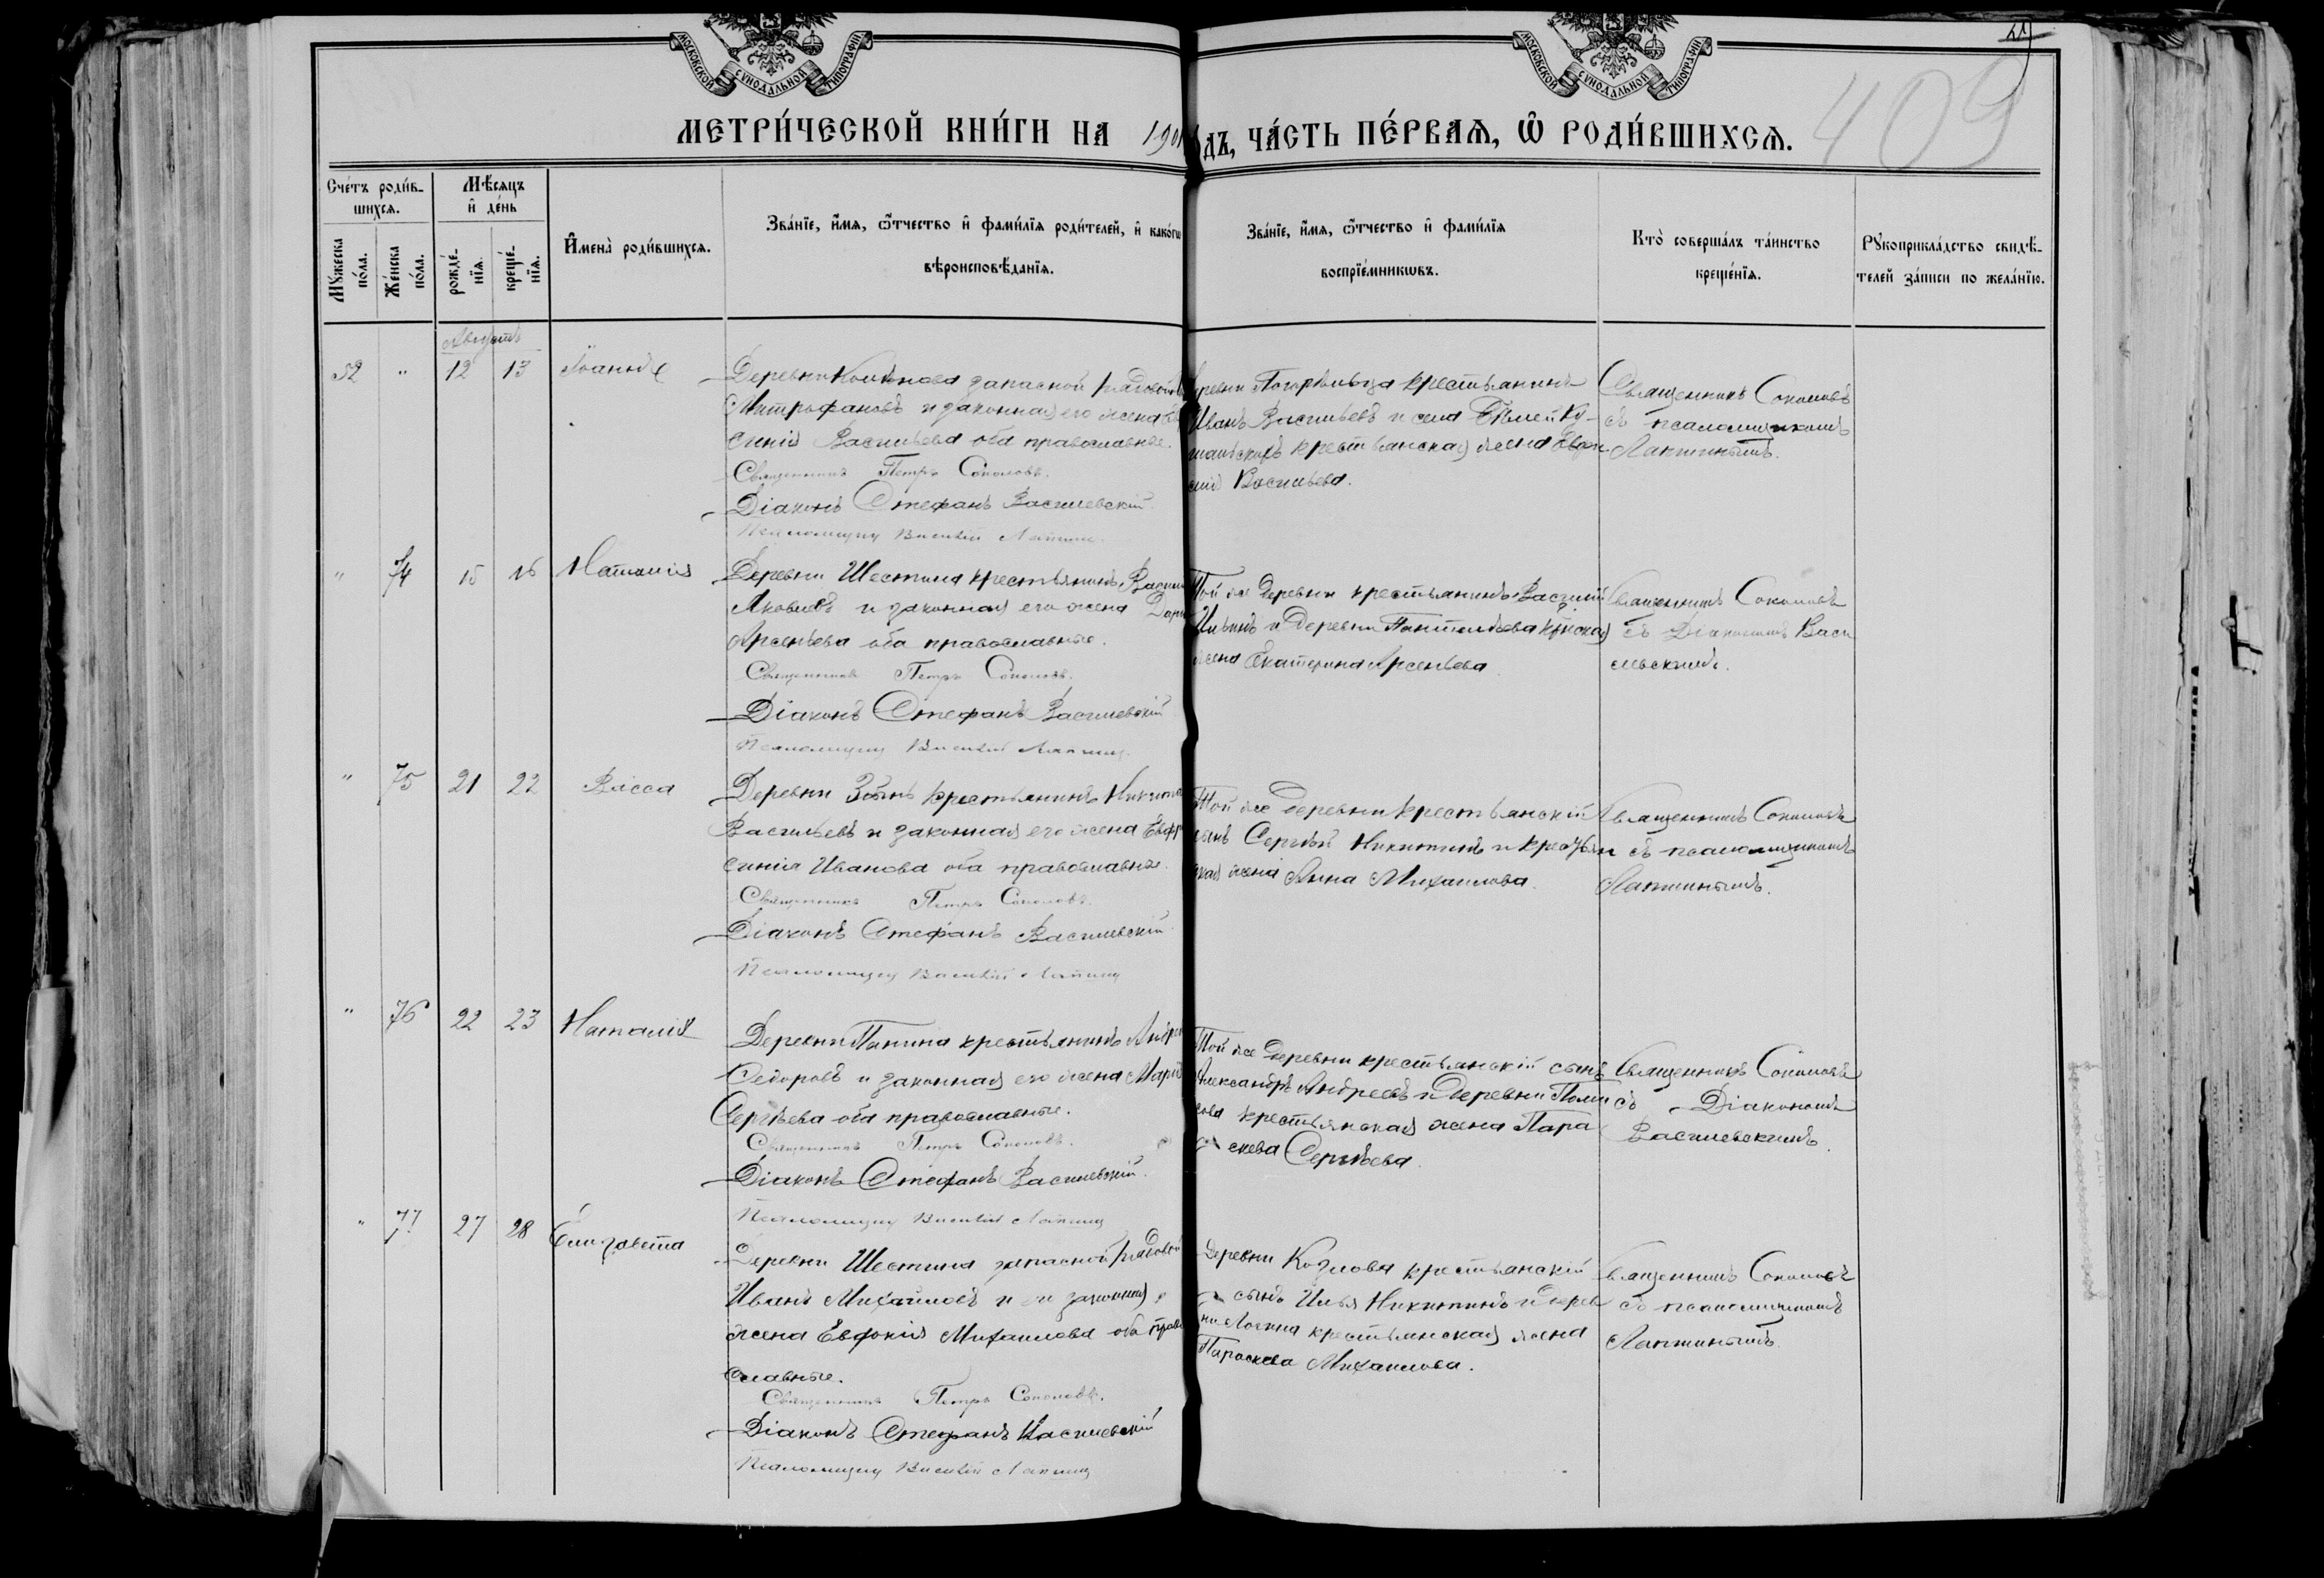 МОСКОВСКОЙ СѴНОДАЛЬНОЙ ТИПОГРАФІИ
МОСКОВСКОЙ СѴНОДАЛЬНОЙ ТИПОГРАФІИ
409
МЕТРИ́ЧЕСКОЙ КНИ́ГИ НА 190
дъ, ЧА́СТЬ ПЕ́РВАЯ, Ѡ҆ РОДИ́ВШИХСЯ.
Сче́тъ роди́в-
шихся.
Мѣсяцъ
и҆ де́нь
Мꙋ́жеска по́ла.
Же́нска по́ла.
рожде́-
нїя.
креще́-
нїя.
И҆мена̀ роди́вшихся.
Зва́нїе, и҆́мя, ѻ҆́тчество и҆ фами́лїя роди́телей, и҆ како́гѡ
вѣроисповѣ́данїя.
Зва́нїе, и҆́мя, ѻ҆́тчество и҆ фами́лїя
воспрїе́мникѡвъ.
Кто̀ соверша́лъ та́инство
креще́нїя.
Рꙋкоприкла́дство свидѣ́-
телей за́писи по жела́нїю.
Августъ
52 " 12 13 Іоаннъ
Деревни запасной рядовой
Митрофановъ и законная его жена Ев
синія Васильева оба православные.
Священникъ Петръ Соколовъ.
Діаконъ Стефанъ Василевскій
Псаломщик Василій Лапшин
Крестьянинъ
Иванъ Васильевъ и села
крестьянская жена Евфро
синія Васильева.
Священникъ Соколовъ
съ псаломщикомъ
Лапшинымъ.
" 74 15 16 Наталія
Деревни Шестина крестьянинъ Васил
Яковлевъ и законная его жена Дарь
Арсеньева оба православные.
Священникъ Петръ Соколовъ.
Діаконъ Стефанъ Василевскій
Псаломщик Василій Лапшин
Той же деревни крестьянинъ Василій
Ильинъ и деревни Пантелѣева
жена Екатерина Арсеньева
Священникъ Соколовъ
съ Діакономъ Васи
левскимъ.
" 75 21 22 Васса
Деревни крестьянинъ Никита
Васильевъ и законная его жена Евфр
синія Иванова оба православные.
Священникъ Петръ Соколовъ.
Діаконъ Стефанъ Василевскій
Псаломщик Василій Лапшин
Той же деревни крестьянскій
сынъ Сергѣй Никитинъ и крестьян
ская жена Анна Михаилова.
Священникъ Соколовъ
съ псаломщикомъ
Лапшинымъ.
" 76 22 23 Наталія
Деревни Панина крестьянинъ Андре
Ѳедоровъ и законная его жена Марія
Сергѣева оба православные.
Священникъ Петръ Соколовъ.
Діаконъ Стефанъ Василевскій.
Псаломщик Василій Лапшин
Той же деревни крестьянскій сынъ
Александръ Андреевъ и деревни
крестьянская жена Пара
скева Сергѣева.
Священникъ Соколовъ
съ Діакономъ
Василевскимъ.
" 77 27 28 Елизавета
Деревни Шестина запасной рядовой
Иванъ Михайловъ и законная
жена Евдокія Михаилова оба право
славные.
Священникъ Петръ Соколовъ.
Діаконъ Стефанъ Василевскій
Псаломщик Василій Лапшин
Деревни Козлова крестьянскій
сынъ Илья Никитинъ и дерев
ни крестьянская жена
Параскева Михаилова.
Священникъ Соколовъ
съ псаломщикомъ
Лапшинымъ.